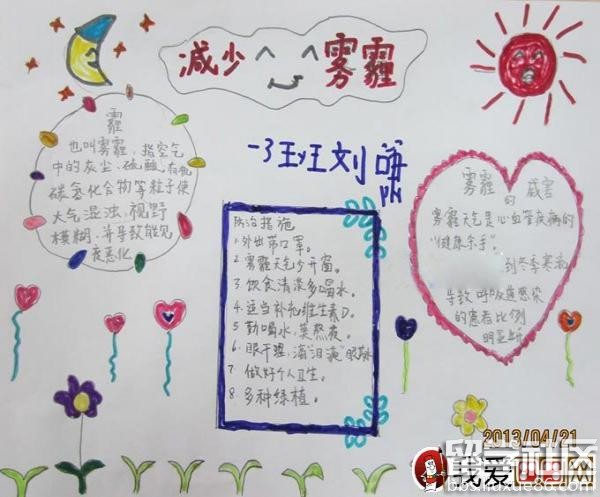 减少 雾霾
一3班刘
霾
也叫雾霾，指空气
中的灰尘，硫酸，有机
碳氢化合物等粒子使
大气混浊，视野
模糊，并导致能见
度恶化
防治措施
1.外出带口罩。
2.雾霾天气少开窗。
3.饮食清淡多喝水。
4.适当补充维生素D。
5.勤喝水，莫熬夜。
6.眼干涩，滴"泪液"眼
7.做好个人卫生。
8.多种绿植。
雾霾
的 威害
雾霾天气是心血管疾病的
"健康杀手"。
到冬季寒
导致呼吸道感染
的患者比例
明显
2013/04/21
我爱 网